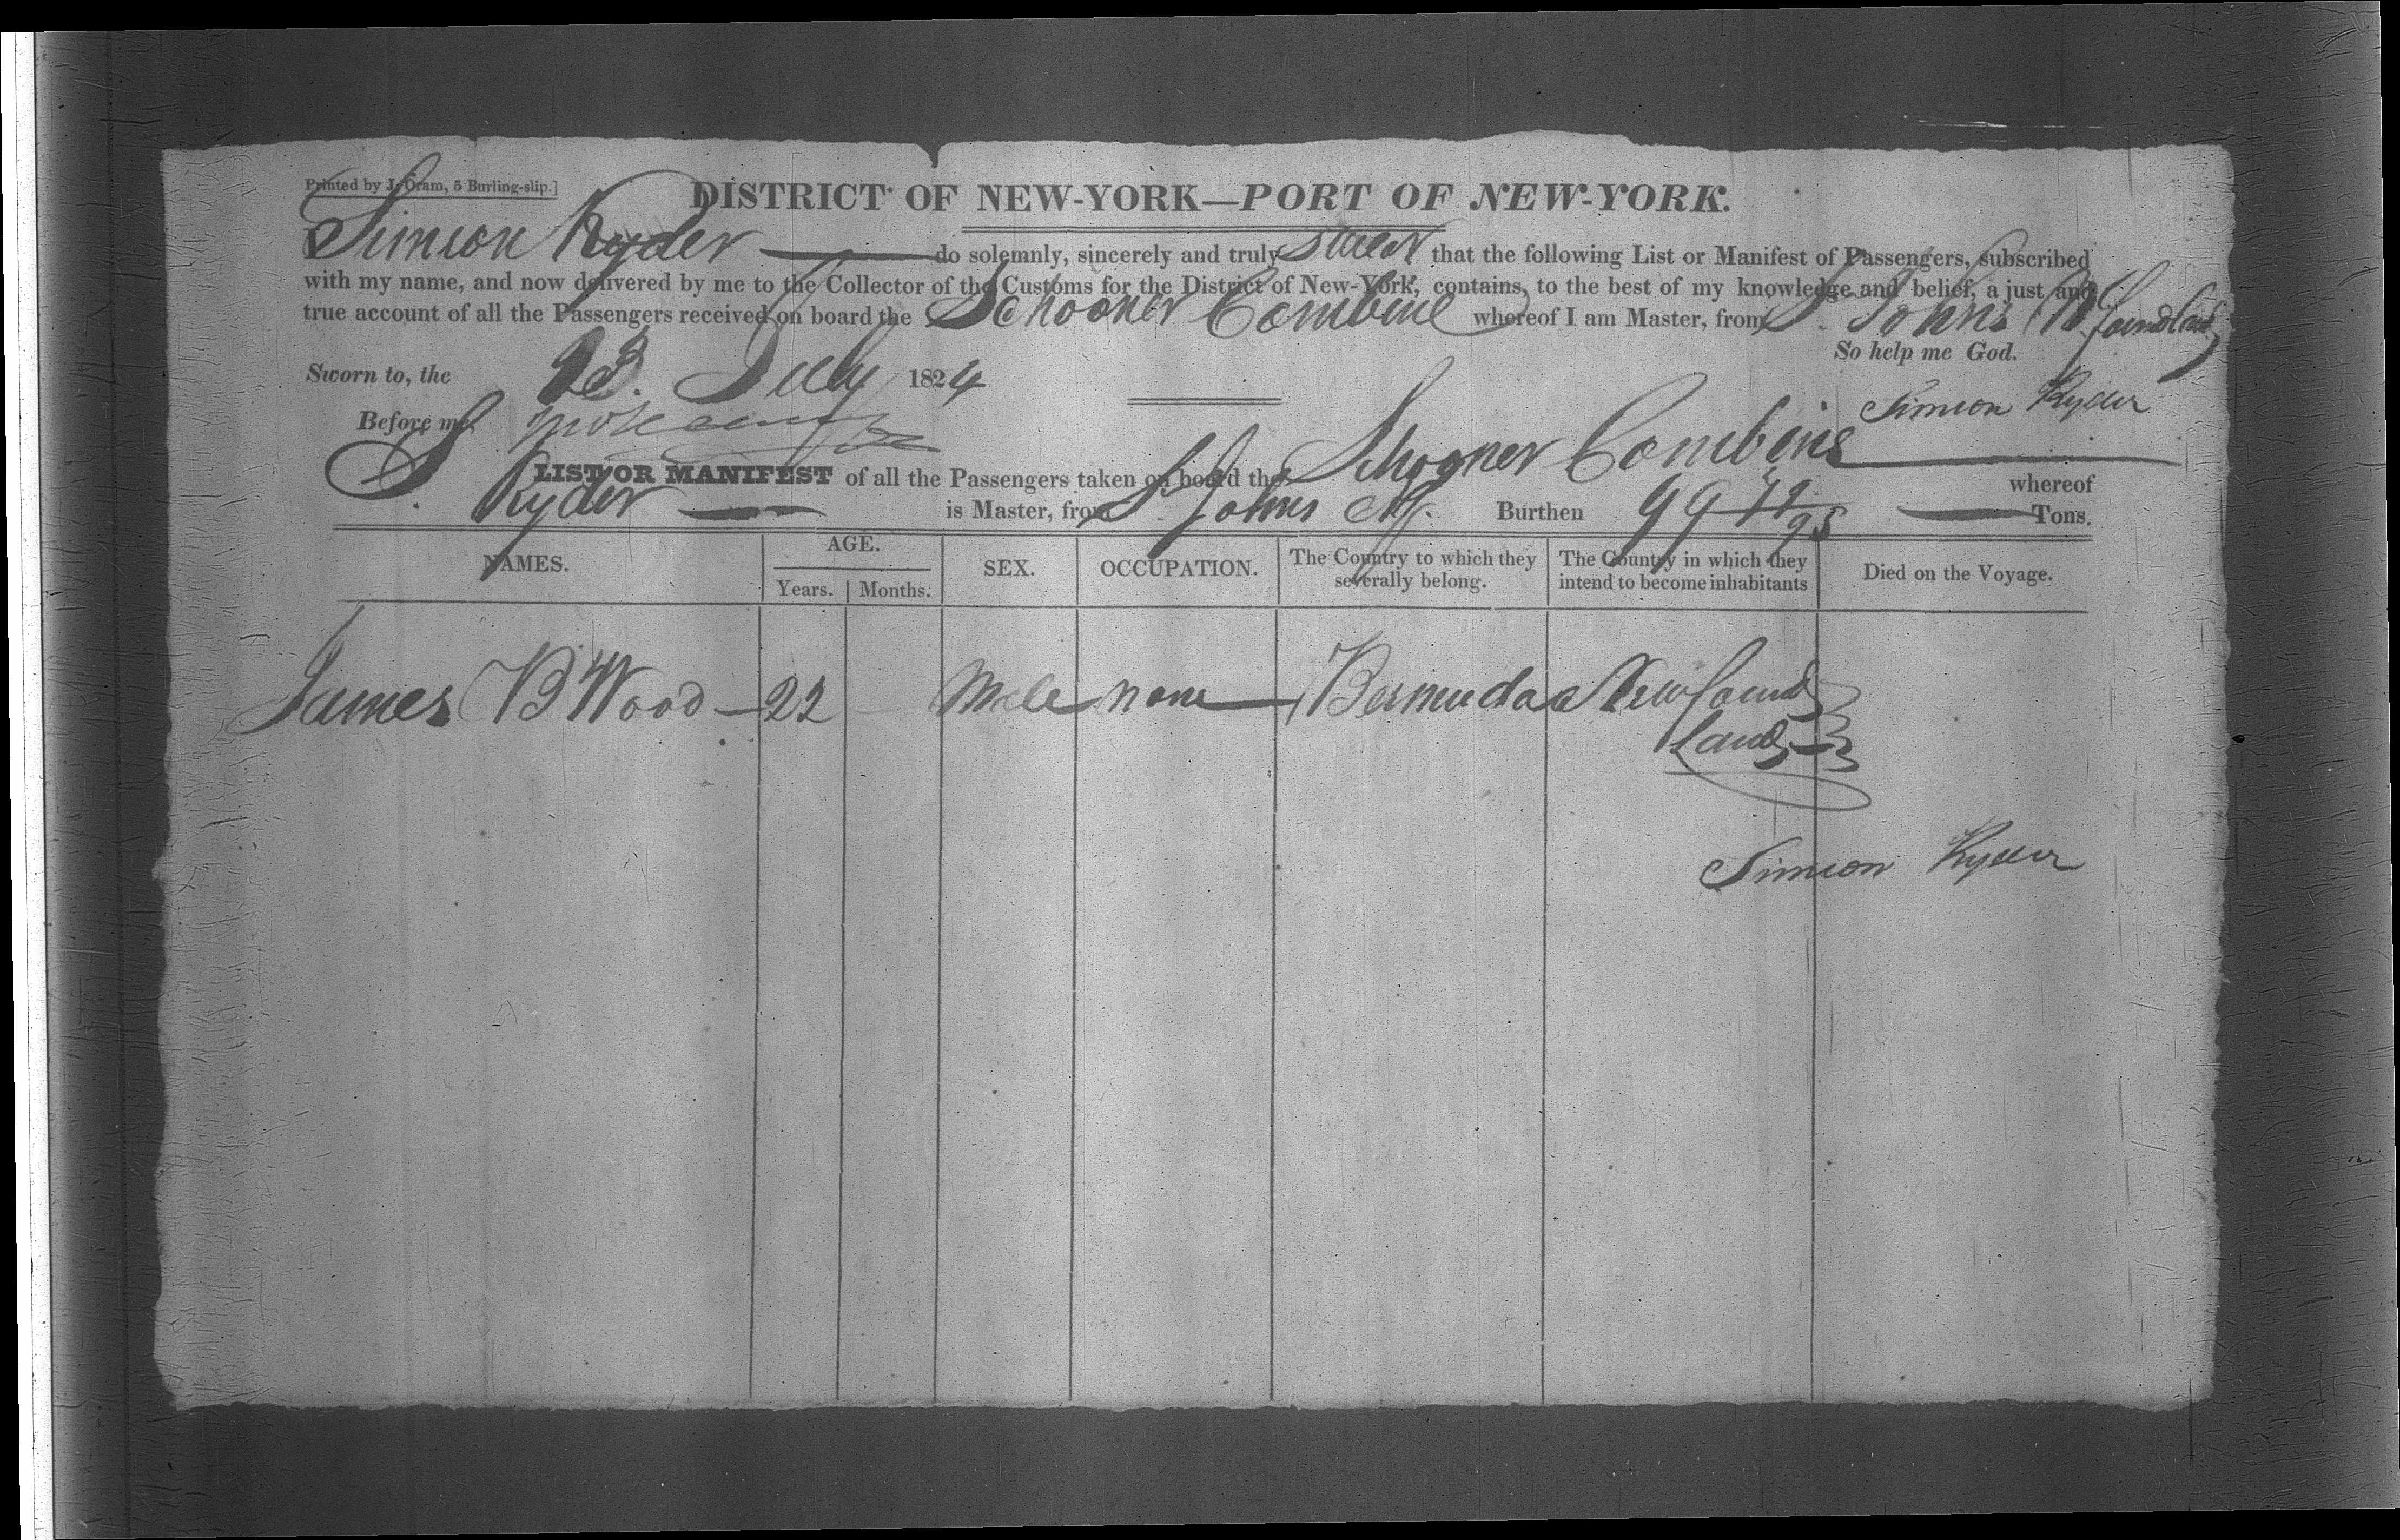 Printed by J. Oram, 5 Burling-slip.]
DISTRICT OF NEW-YORK—PORT OF NEW-YORK.
Simeon Ryder do solemnly, sincerely and truly swear that the following List or Manifest of Passengers, subscribed
with my name, and now delivered by me to the Collector of the Customs for the District of New-York, contains, to the best of my knowledge and belief, a just and
true account of all the Passengers received on board the Schooner Combine whereof I am Master, from St. Johns Nfoundland
So help me God.
Sworn to, the 23. July 1824
Simeon Ryder
Before me,
LIST OR MANIFEST of all the Passengers taken on board the Schooner Combine whereof
S Ryder is Master, from St. Johns Nf. Burthen 99 Tons.
NAMES. AGE. SEX. OCCUPATION. The Country to which they severally belong. The Country in which they intend to become inhabitants Died on the Voyage.
Years. Months.
James B Wood — 22 Male none Bermuda Newfound
Land
Simeon Ryder